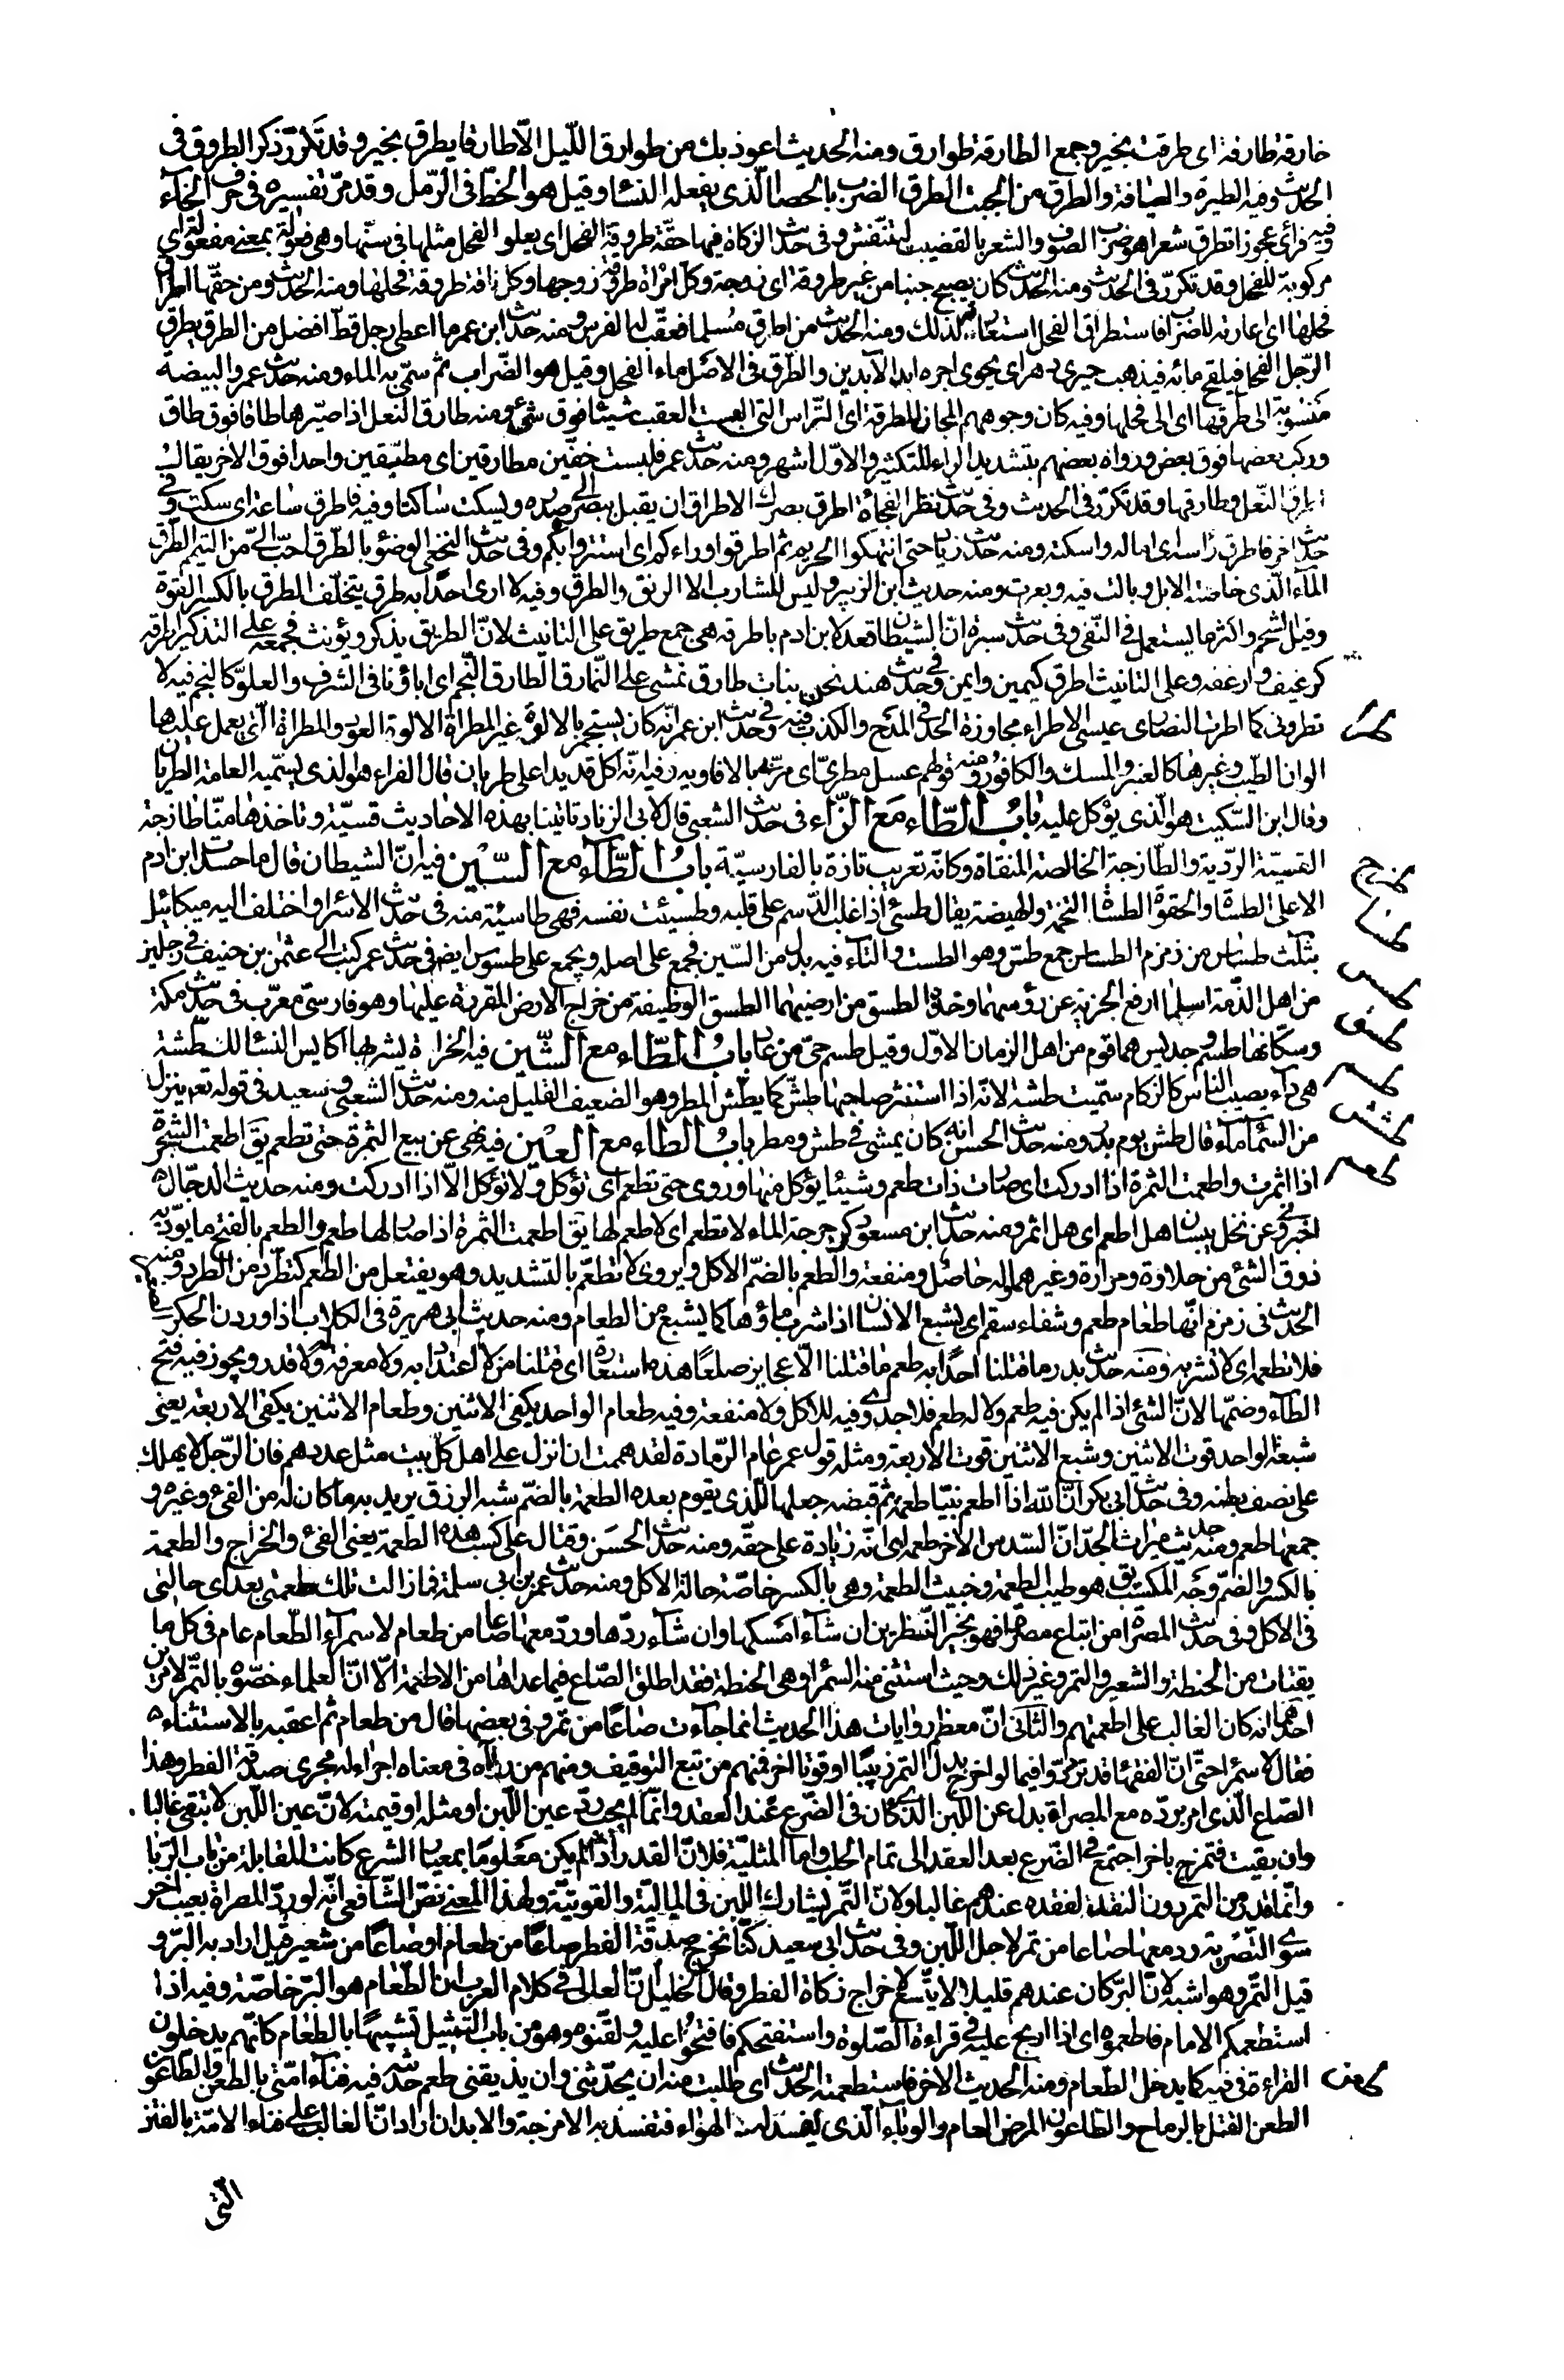 خارقة طارفة اى طرقت بخير وجمع الطارقة طوارق ومنه الحديث اعوذ بك من طوارق اللّيل الّا طارقا يطرق بخير وقد تكرّر ذكر الطروق فى
الحديث وفيه الطيرة والعيافة والطرق من الجبت الطرق الضرب بالحصا الّذى يفعله النسا وقيل هو الخطّ فى الرّمل وقد مرّ تفسيره فى حرف الخآء
وفيه فرأى عجوزا تطرق شعرا هو ضرب الصوف والشعر بالقضيب لينتفش وفى حديث الزكاة فيها حقّة طروقة الفحل اى يعلو الفحل مثلها فى سنّها وهى فعولة بمعنى مفعولة اى
مركوبة للفحل وقد تكرّر فى الحديث ومنه الحديث كان يصبح جنبا من غير طروقة اى زوجة وكلّ امرأة طروقة زوجها وكل ناقة طروقة فحلها ومنه الحديث ومن حقّها اطراق
فحلها اى اعارته للضراب واستطراق الفحل استعارته لذلك ومنه الحديث من اطرق مُسلما فعقّت له الفرس ومنه حديث ابن عمر ما اعطى رجل قطّ افضل من الطرق يطرق
الرّجل الفحل فيلقح مائة فيذهب حيرى دهر اى يحوى اجره ابد الآبدين والطرق فى الاصل ماء الفحل وقيل هو الضّراب ثم سمّى به الماء ومنه حديث عمر والبيضة
منسوبة الى طرقها اى الى فحلها وفيه كان وجوههم المجان المطرقة اى التّراس التى البست العقب شيئا فوق شئ ومنه طارق النعل اذا صيّرها طاقا فوق طاق
وركب بعضها فوق بعض ورواه بعضهم بتشديد الراء للتكثير والاوّل اشهر ومنه حديث عمر فلبست خفّين مطارقين اى مطبّقين واحدا فوق الآخر يقال
اطرق النّعل وطارقها وقد تكرّر فى الحديث وفى حديث نظر الفجأة اطرق بصرك الاطراق ان يقبل ببصره الى صدره ويسكت ساكتا وفيه فاطرق ساعة اى سكت وفى
حديث آخر فاطرق رأسه اى اماله واسكنه ومنه حديث زياد حتى انتهكوا الحريم ثم اطرقوا وراءكم اى استتروا بكم وفى حديث النخعى الوضوء بالطرق احبّ الىّ من التيمّم الطرق
المآء الّذى خاضته الابل وبالت فيه وبعرت ومنه حديث ابن الزبير وليس للشارب الا الرنق والطرق وفيه لا ارى احدًا به طرق يتخلّف الطرق بالكسر القوّة
وقيل الشحم واكثر ما يستعمل فى النّفى وفى حديث سبرة انّ الشيطان قعد لابن ادم باطرقه هى جمع طريق على التانيث لانّ الطريق يذكر ويؤنث فجمعه على التذكير اطرقة
كرغيف وارغفه وعلى التانيث اطرق كيمين وايمن وفى حديث هند نحن بنات طارق نمشى على النمارق الطارق النّجم اى اباؤنا فى الشرف والعلوّ كالنجم فيه لا
تطرونى كما اطرت النصارى عيسى الاطراء مجاوزة الحدّ فى المدح والكذب فيه وفى حديث ابن عمر انّه كان يستجمر بالالوّة غير المطراة الالوة العود والمطراة التى يعمل عليها
الوان الطيب وغيرها كالعنبر والمسك والكافور ومنه قولهم عسل مطرىّ اى مربّى بالافاويه وفيه انّه اكل قديدا على طريان قال الفراء هو الذى يسمّيه العامة الطريان
وقال ابن السّكيت هو الّذى يؤكل عليه بابُ الطّاء مَع الزّاء فى حديث الشعبى قال لابى الزناد تاتينا بهذه الاحاديث قسيّة وتاخذها منّا طازجة
القسيّة الرّدية والطّازجة الخالصة المنقاة وكانّه تعريب تازة بالفارسيّة بابُ الطّآء مع السّين فيه انّ الشيطان قال ما حسدت ابن ادم
الا على الطسّاة والحقوة الطسّاة التخمة والهيضة يقال طسئ اذا غلب الدّسم على قلبه وطسئت نفسه فهى طاسئة منه فى حديث الاسرا واختلف اليه ميكائيل
بثلث طساس من زمزم الطساس جمع طسّ وهو الطست والتآء فيه بدل من السّين فجمع على اصله ويجمع على طسوس ايض فى حديث عمر كتب الى عثمن بن حنيف فى رجلين
من اهل الذّمة اسلما ارفع الجزية عن رؤسهما وخذ الطسق من ارضيهما الطسق الوظيفة من خراج الارض المقررة عليها وهو فارسىّ معرّب فى حديث مكة
وسكّانها طسم وجديس هما قوم من اهل الزمان الاوّل وقيل طسم حىّ من عاد بابُ الطّاء مع الشّين فيه الخزاة يشربها اكايس النسا للطّشة
هى دآء يصيب النّاس كالزكام سمّيت طشة لانّه اذا استنثر صاحبها طشّ كما يطشّ المطر وهو الضعيف القليل منه ومنه حديث الشعبى وسعيد فى قوله تعم ينزل
من السّماء مآء قال طشّ يوم بدر ومنه حديث الحسن انه كان يمشى فى طش ومطر بابُ الطاء مع العين فيه نهى عن بيع الثمرة حتى تطعم يقَ اطعمت الشجرة
اذا اثمرت واطعمت الثمرة اذا ادركت اى صارت ذات طعم وشيئا يؤكل منها وروى حتى تطعم اى تؤكل ولا تؤكل الّا اذا ادركت ومنه حديث الدجّال
اخبرونى عن نخل بيسان هل اطعم اى هل اثمر ومنه حديث ابن مسعود كرجرجة الماء لا تطعم اى لا طعم لها يقَ اطعمت الثمرة اذا صار لها طعم والطعم بالفتح ما يؤدّيه
ذوق الشئ من حلاوة ومرارة وغيرهما وله حاصل ومنفعة والطعم بالضّم الاكل ويروى لا تطّعم بالتشديد وهو يفتعل من الطعم كتطّرد من الطرد ومنه
الحديث فى زمزم انّها طعام طعم وشفاء سقم اى يشبع الانسان اذا شرب ماؤها كما يشبع من الطعام ومنه حديث ابى هريرة فى الكلاب اذا وردن الحكر
فلا تطعمه اى لا تشربه ومنه حديث بدر ما قتلنا احدًا به طعم ما قتلنا الّا عجايز صلعًا هذه استعارة اى قتلنا من لا اعتداد به ولا معرفة ولا قدر ويجوز فيه فتح
الطآء وضمّها لانّ الشئ اذا لم يكن فيه طعم ولا له طعم فلا جدوى فيه للاكل ولا منفعة وفيه طعام الواحد يكفى الاثنين وطعام الاثنين يكفى الاربعة يعنى
شبعة الواحد قوت الاثنين وشبع الاثنين قوت الاربعة ومثله قول عمر عام الرّمادة لقد هممت ان انزل على اهل كلّ بيت مثل عددهم فان الرّجل لا يهلك
على نصف بطنه وفى حديث ابى بكر انّ الله اذا اطعم نبيّا طعمة ثم قبضه جعلها للّذى يقوم بعده الطعمة بالضمّ شبه الرزق يريد به ما كان له من الفئ وغيره و
جمعها طعم ومنه حديث ميراث الجدّ انّ السّدس الاخر طعمة اى انّه زيادة على حقّه ومنه حديث الحسَن وقتال على كسب هذه الطعمة يعنى الفئ والخراج والطعمة
بالكسر والضمّ وجه المكسب يق هو طيب الطعمة وخبيث الطعمة وهى بالكسر خاصّة حالة الاكل ومنه حديث عمر بن ابى سلمة فما زالت تلك طعمتى بعد اى حالتى
فى الاكل وفى حديث المصراة من ابتاع مصراة فهو بخير النّظرين ان شآء امسكها وان شآء ردّها وردّ معها صاعا من طعام لا سمرآء الطّعام عام فى كل ما
يقتات من الحنطة والشعير والتمر وغير ذلك وحيث استثنى منه السمراء وهى الحنطة فقد اطلق الصّاع فيما عداها من الاطعمة الّا انّ العلماء خصّوه بالتّمر لامرين
احدهما انه كان الغالب على اطعمتهم والثّانى انّ معظم روايات هذا الحديث انما جآءت صاعًا من تمر وفى بعضها قال من طعام ثم اعقبه بالاستثناء
فقال لا سمراء حتى انّ الفقهاء قد تردّدوا فيما لو اخرج بدل التمر زبيبًا او قوتا اخر فمنهم من تبع التوقيف ومنهم من رآه فى معناه اجراء له مجرى صدقة الفطر وهذا
الصّاع الّذى امر بردّه مع المصراة بدل عن اللبن الّذى كان فى الضّرع عند العقد وانّما لم يجب ردّ عين اللّبن او مثله او قيمته لانّ عين اللّبن لا تبقى غالبا
وان بقيت فتمزج باخر اجتمع فى الضّرع بعد العقد الى تمام الحلب واما المثليّة فلانّ القدر اذا لم يكن معلومًا بمعيار الشرع كانت المقابلة من باب الرّبا
وانّما قدر من التمر دون النقد لفقده عندهم غالبا ولانّ التّمر يشارك اللبن فى الماليّة والقوتيّة ولهذا المعنى نصّ الشّافعى انّه لو ردّ المصراة بعيب اخر
سوى التصرية رد معها صاعا من تمر لاجل اللّبن وفى حديث ابى سعيد كنّا نخرج صدقة الفطر صاعًا من طعام او صاعًا من شعير قيل اراد به البرّ و
قيل التّمر وهو اشبه لانّ البرّ كان عندهم قليلا لا يتّسع لاخراج زكاة الفطر وقال الخليل انّ العالى فى كلام العرب انّ الطّعام هو البرّ خاصّة وفيه اذا
استطعمكم الامام فاطعموه اى اذا ارتج عليه فى قراءة الصّلوة واستفتحكم فافتحوا عليه ولقّنوه وهو من باب التمثيل تشبيهًا بالطعام كانّهم يدخلون
القراءة فى فيه كما يدخل الطّعام ومنه الحديث الاخر فاستطعمته الحديث اى طلبت منه ان يحدّثنى وان يذيقنى طعم حديثه فيه فنآء امّتى بالطعن والطّاعون
الطعن القتل بالرماح والطّاعون المرض العام والوبآء الّذى يفسد له الهواء فتفسد به الامزجة والابدان اراد انّ الغالب على فناء الامّة بالفتن
طرا
طزج
طسا
طسس
طسق
طسم
طشش
طعم
طعن
الّتى